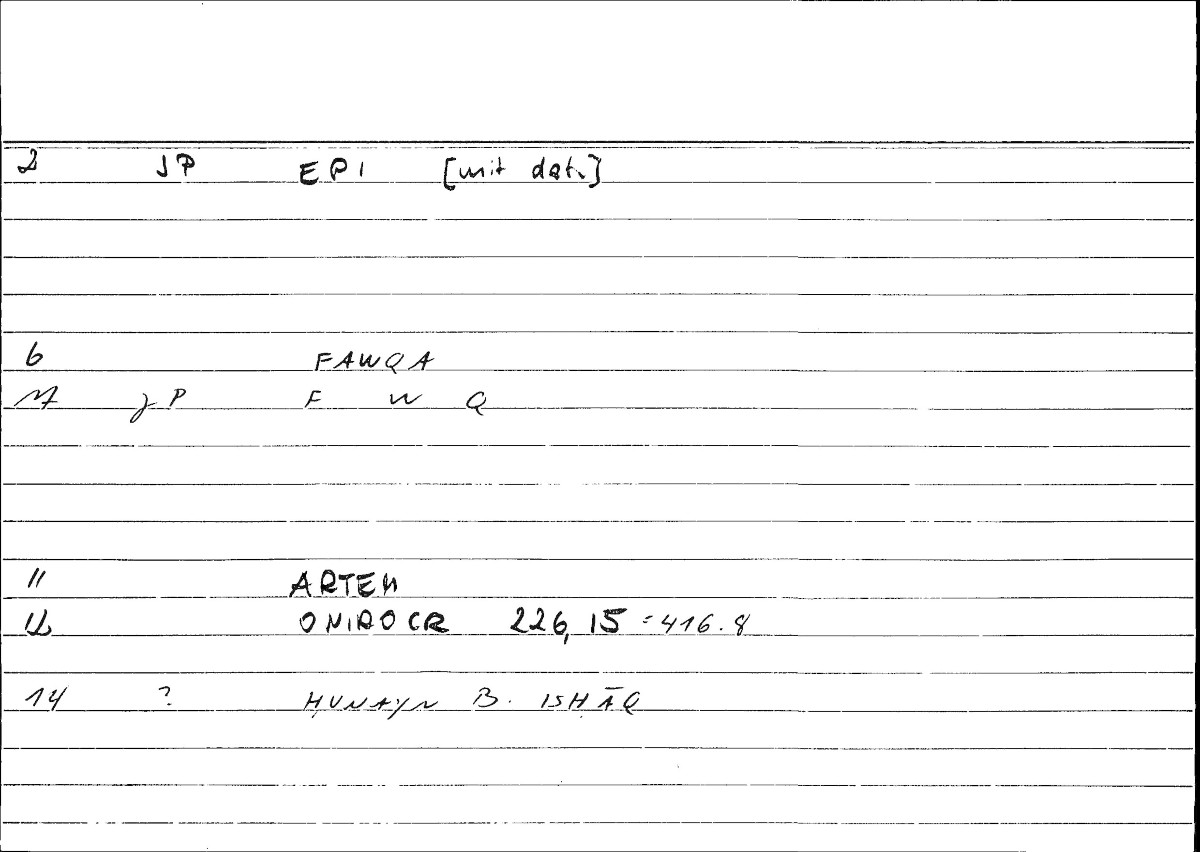 2 JP EPI [mit dat.]
6 FAWQA
M JP F W Q
11 ARTEM
12 ONIROCR 226,15 = 416.8
14 ? ḤUNAYN B. ISḤĀQ